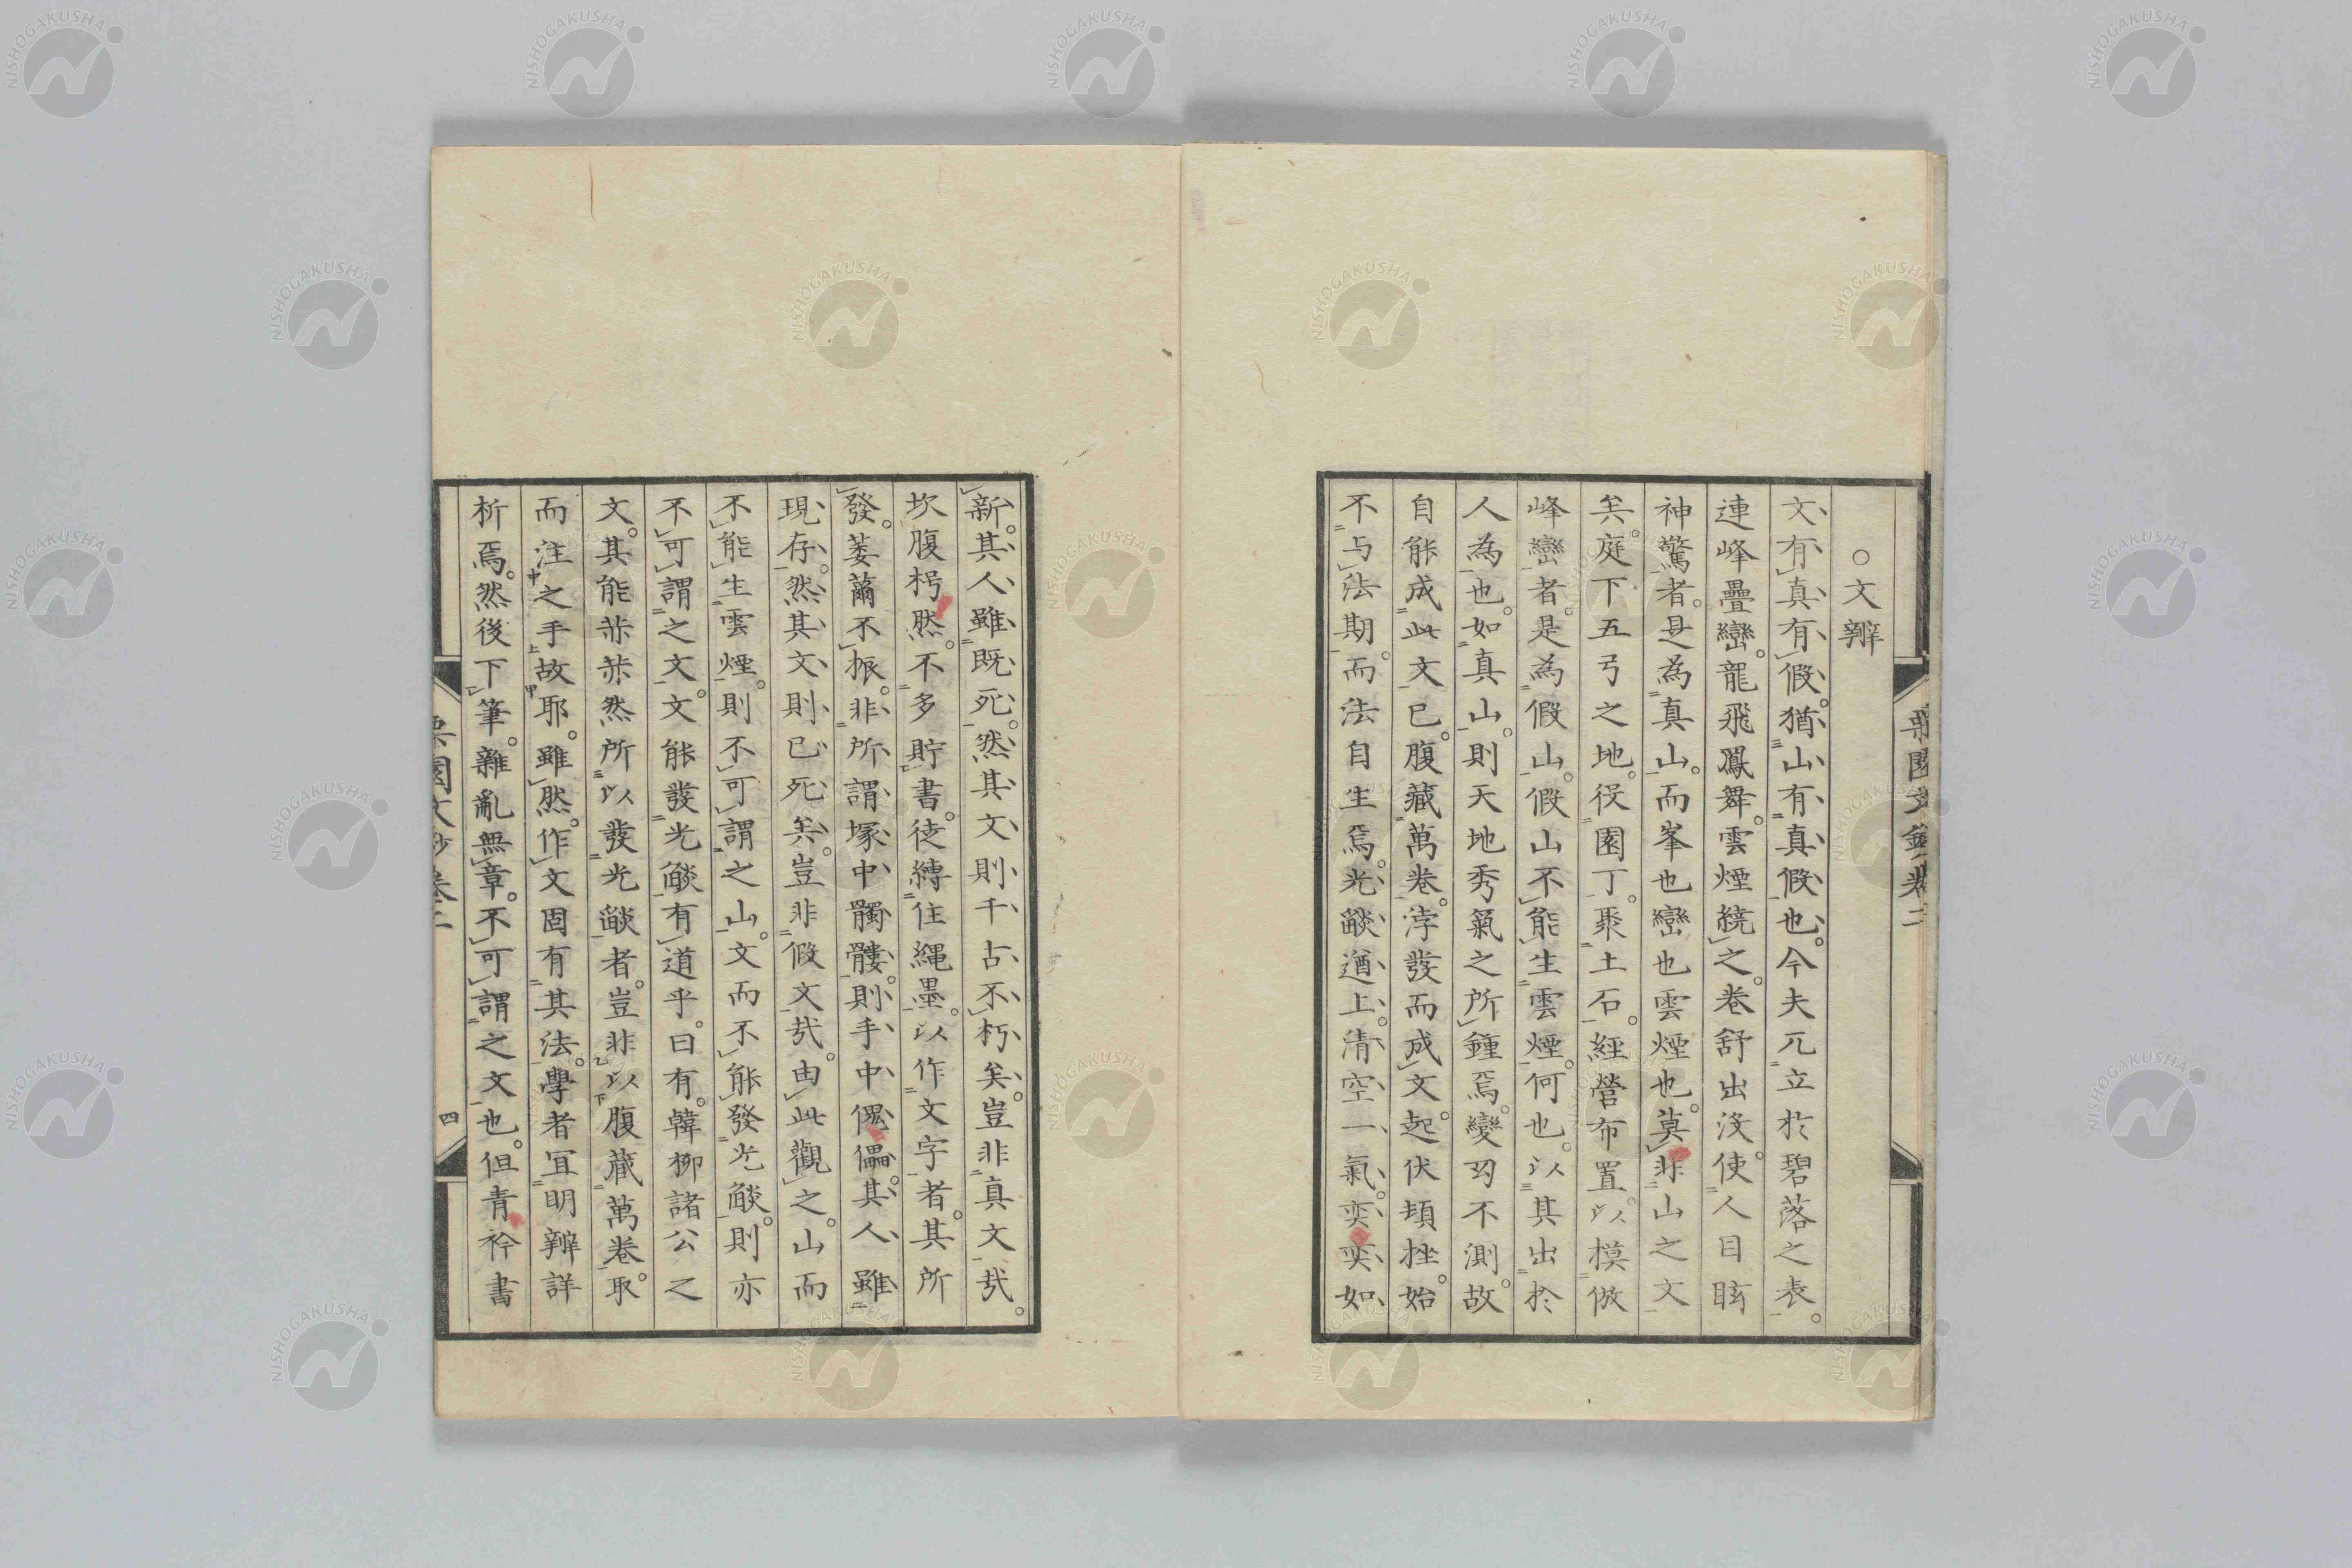 ○文辨
文有真有假。猶山有真假也。今夫兀立於碧落之表。
連峰疊巒。龍飛鳳舞。雲煙繞之。卷舒出沒。使人目眩
神驚者。是為真山。而峯也巒也雲煙也。莫非山之文
矣。庭下五弓之地。役園丁。聚土石。經營布置。以模倣
峰巒者。是為假山。假山不能生雲煙。何也。以其出於
人為也。如真山。則天地秀氣之所鍾焉。變幻不測。故
自能成此文已。腹藏萬卷。浡發而成文。起伏頓挫。始
不与法期。而法自生焉。光燄遒上。清空一氣。奕奕如
新。其人雖既死。然其文則千古不朽矣。豈非真文哉。
坎腹枵然。不多貯書。徒縛住繩墨。以作文字者。其所
發。萎薾不振。非所謂塚中髑髏。則手中傀儡。其人雖
現存。然其文則已死矣。豈非假文哉。由此觀之。山而
不能生雲煙。則不可謂之山。文而不能發光燄。則亦
不可謂之文。文能發光燄有道乎。曰有。韓柳諸公之
文。其能赫赫然所以發光燄者。豈非以腹藏萬卷。取
而注之手故耶。雖然。作文固有其法。學者宜明辨詳
析焉。然後下筆。雜亂無章。不可謂之文也。但青衿書
四
NISHOGAKUSHA